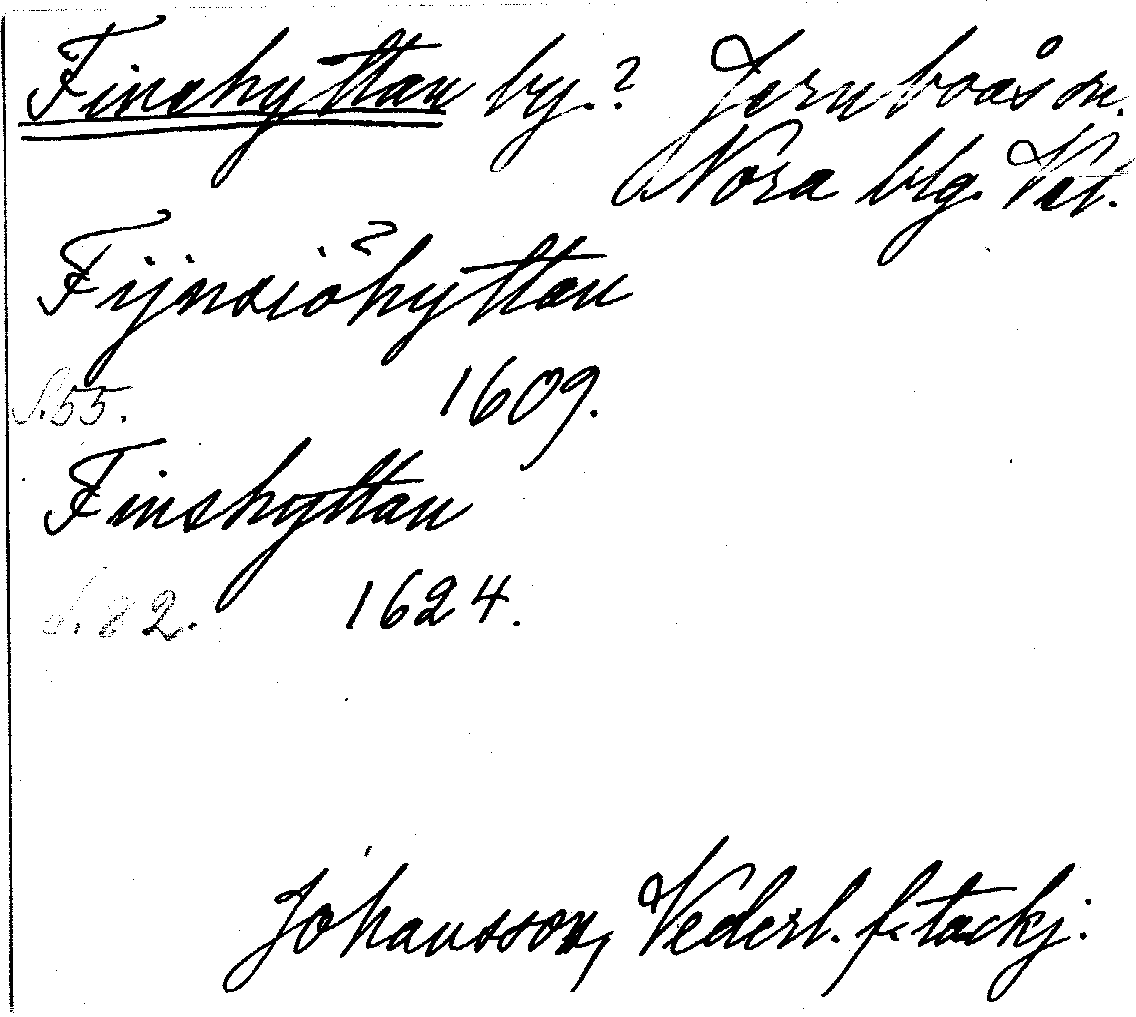 Finshyttan by.? Jernboås sn.
Nora blg. Vstl.
Fijnsiöhyttan
S. 55. 1609.
Finshyttan
S. 82. 1624.
Johansson, Vederl. f. tackj.